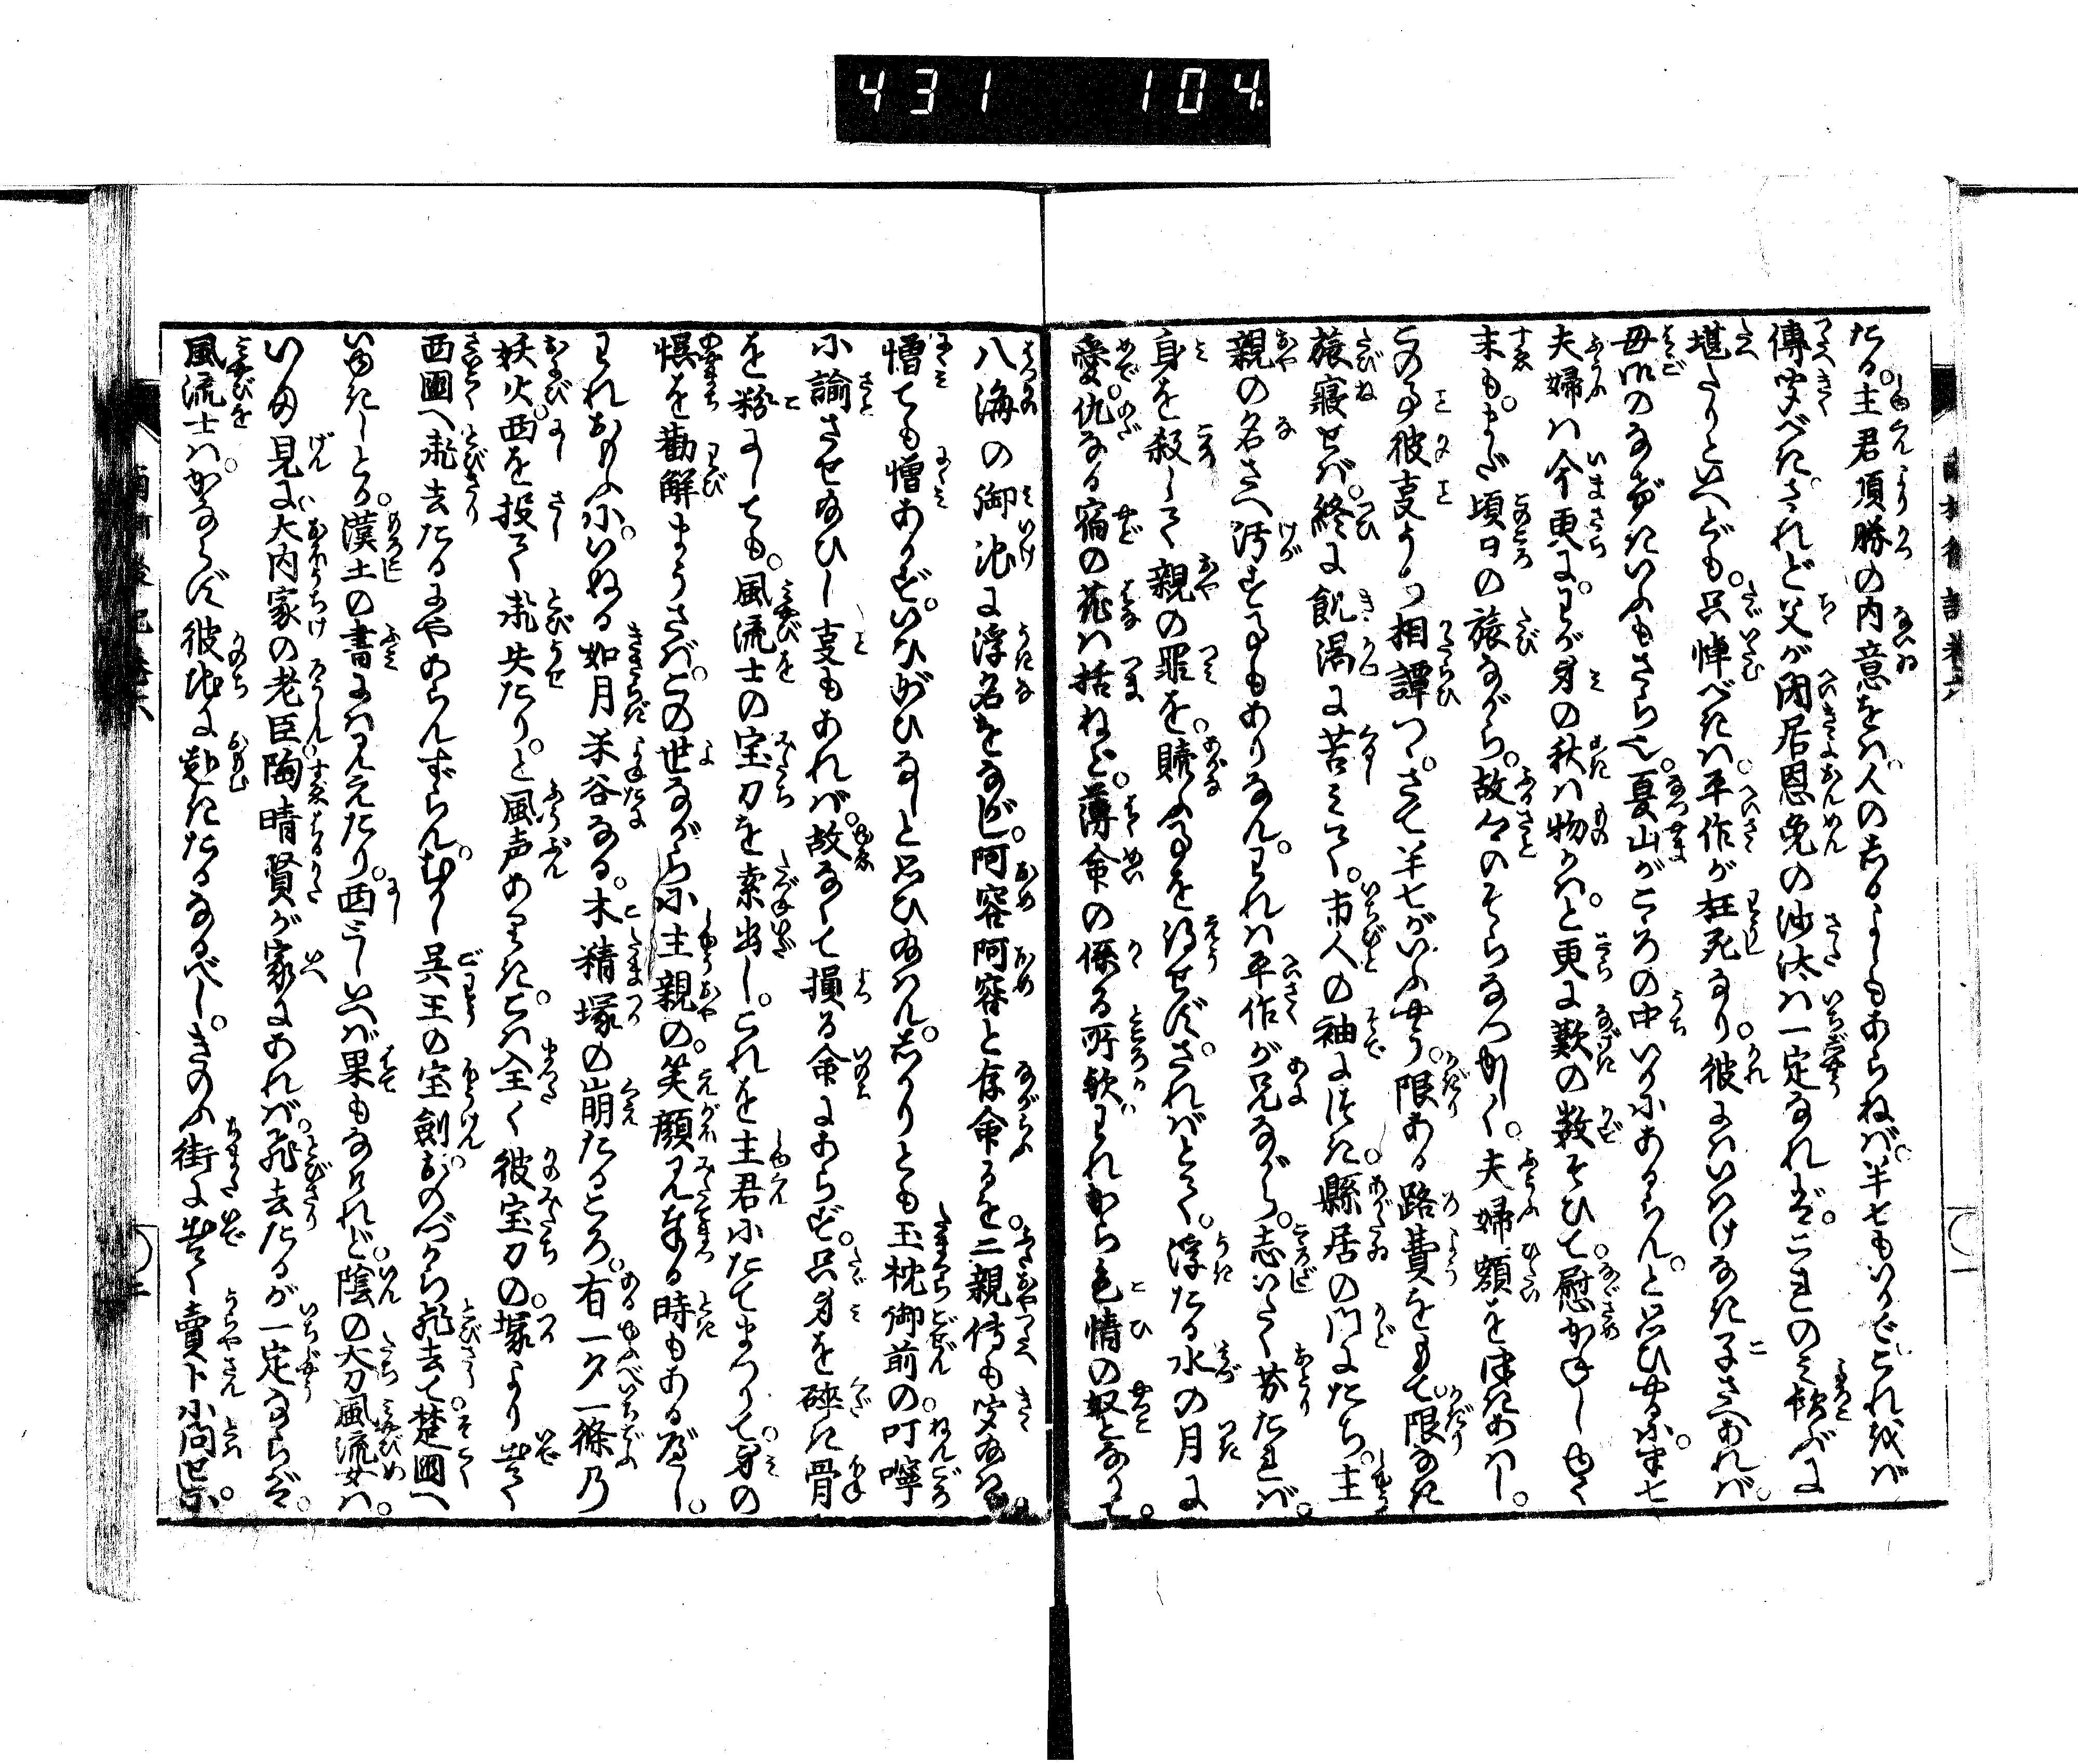 431 104
たる。主君順勝の内意をバ。人のしるよしもあらねバ。半七もいかでこれをバ
傳聞べき。されど父が閉居恩免の沙汰ハ一定なれば。これのミ頼バに
堪たりといへども。只悼べきハ。平作が枉死なり。彼にハいはけなき子さへあれバ。
母御のなげきいふもさら也。夏山がこゝろの中いかにあるらん。と思ひやるに。半七
夫婦ハ今更に。わが身の秋ハ物かハ。と更に歎の数そひて。慰かねしゆく
末も。まだ頃日の旅ながら。故郷のそらなつかしく。夫婦額を津きあハし。
この事彼事とうち相譚つゝ。さて半七がいふやう。限ある路費をもて。限なき
旅寝せバ。終に飢渇に苦ミて。市人の袖に注き。縣居の門にたち。主
親の名さへ汚す事もありなん。われハ平作が兄ながら。志いたく劣たれバ。
身を殺して親の罪を。贖ふ事を得せず。されバとて。浮たる水の月に
愛。仇なる宿の花ハ括ねど。薄命の係る所歟。われから色情の奴となりて。
八海の御池に浮名をながし。阿容阿容と存命るを。二親傳も聞給はゞ。
憎ても憎あかず。いひがひなしと思ひ給はん。しかりとも玉枕御前の叮嚀
に諭させ給ひし事もあれバ。故なくて損る命にあらず。只身を碎き骨
を粉にしても。風流士の宝刀を索出し。これを主君にたてまつりて。身の
悞を勸解まうさバ。この世ながらに主親の。笑顔見奉る時もあるべし。
われおもふに。いぬる如月米谷なる。木精塚の崩たるころ。有一夕一條乃
妖火。西を投て飛失たり。と風声ありき。こハ全く彼宝刀の。塚より出て
西國へ飛去たるにやあらんずらん。むかし呉王の宝劔。おのづから飛去て。楚國へ
いゆきしとか。漢土の書にハ見えたり。西としいへバ果もなけれど。陰の太刀風流女ハ。
いま現に大内家の老臣陶晴賢が家にあれバ。飛去たるが一定ならば。
風流士ハ。かならず彼地に赴きたるなるべし。きのふ街に出て賣卜に問せしに。